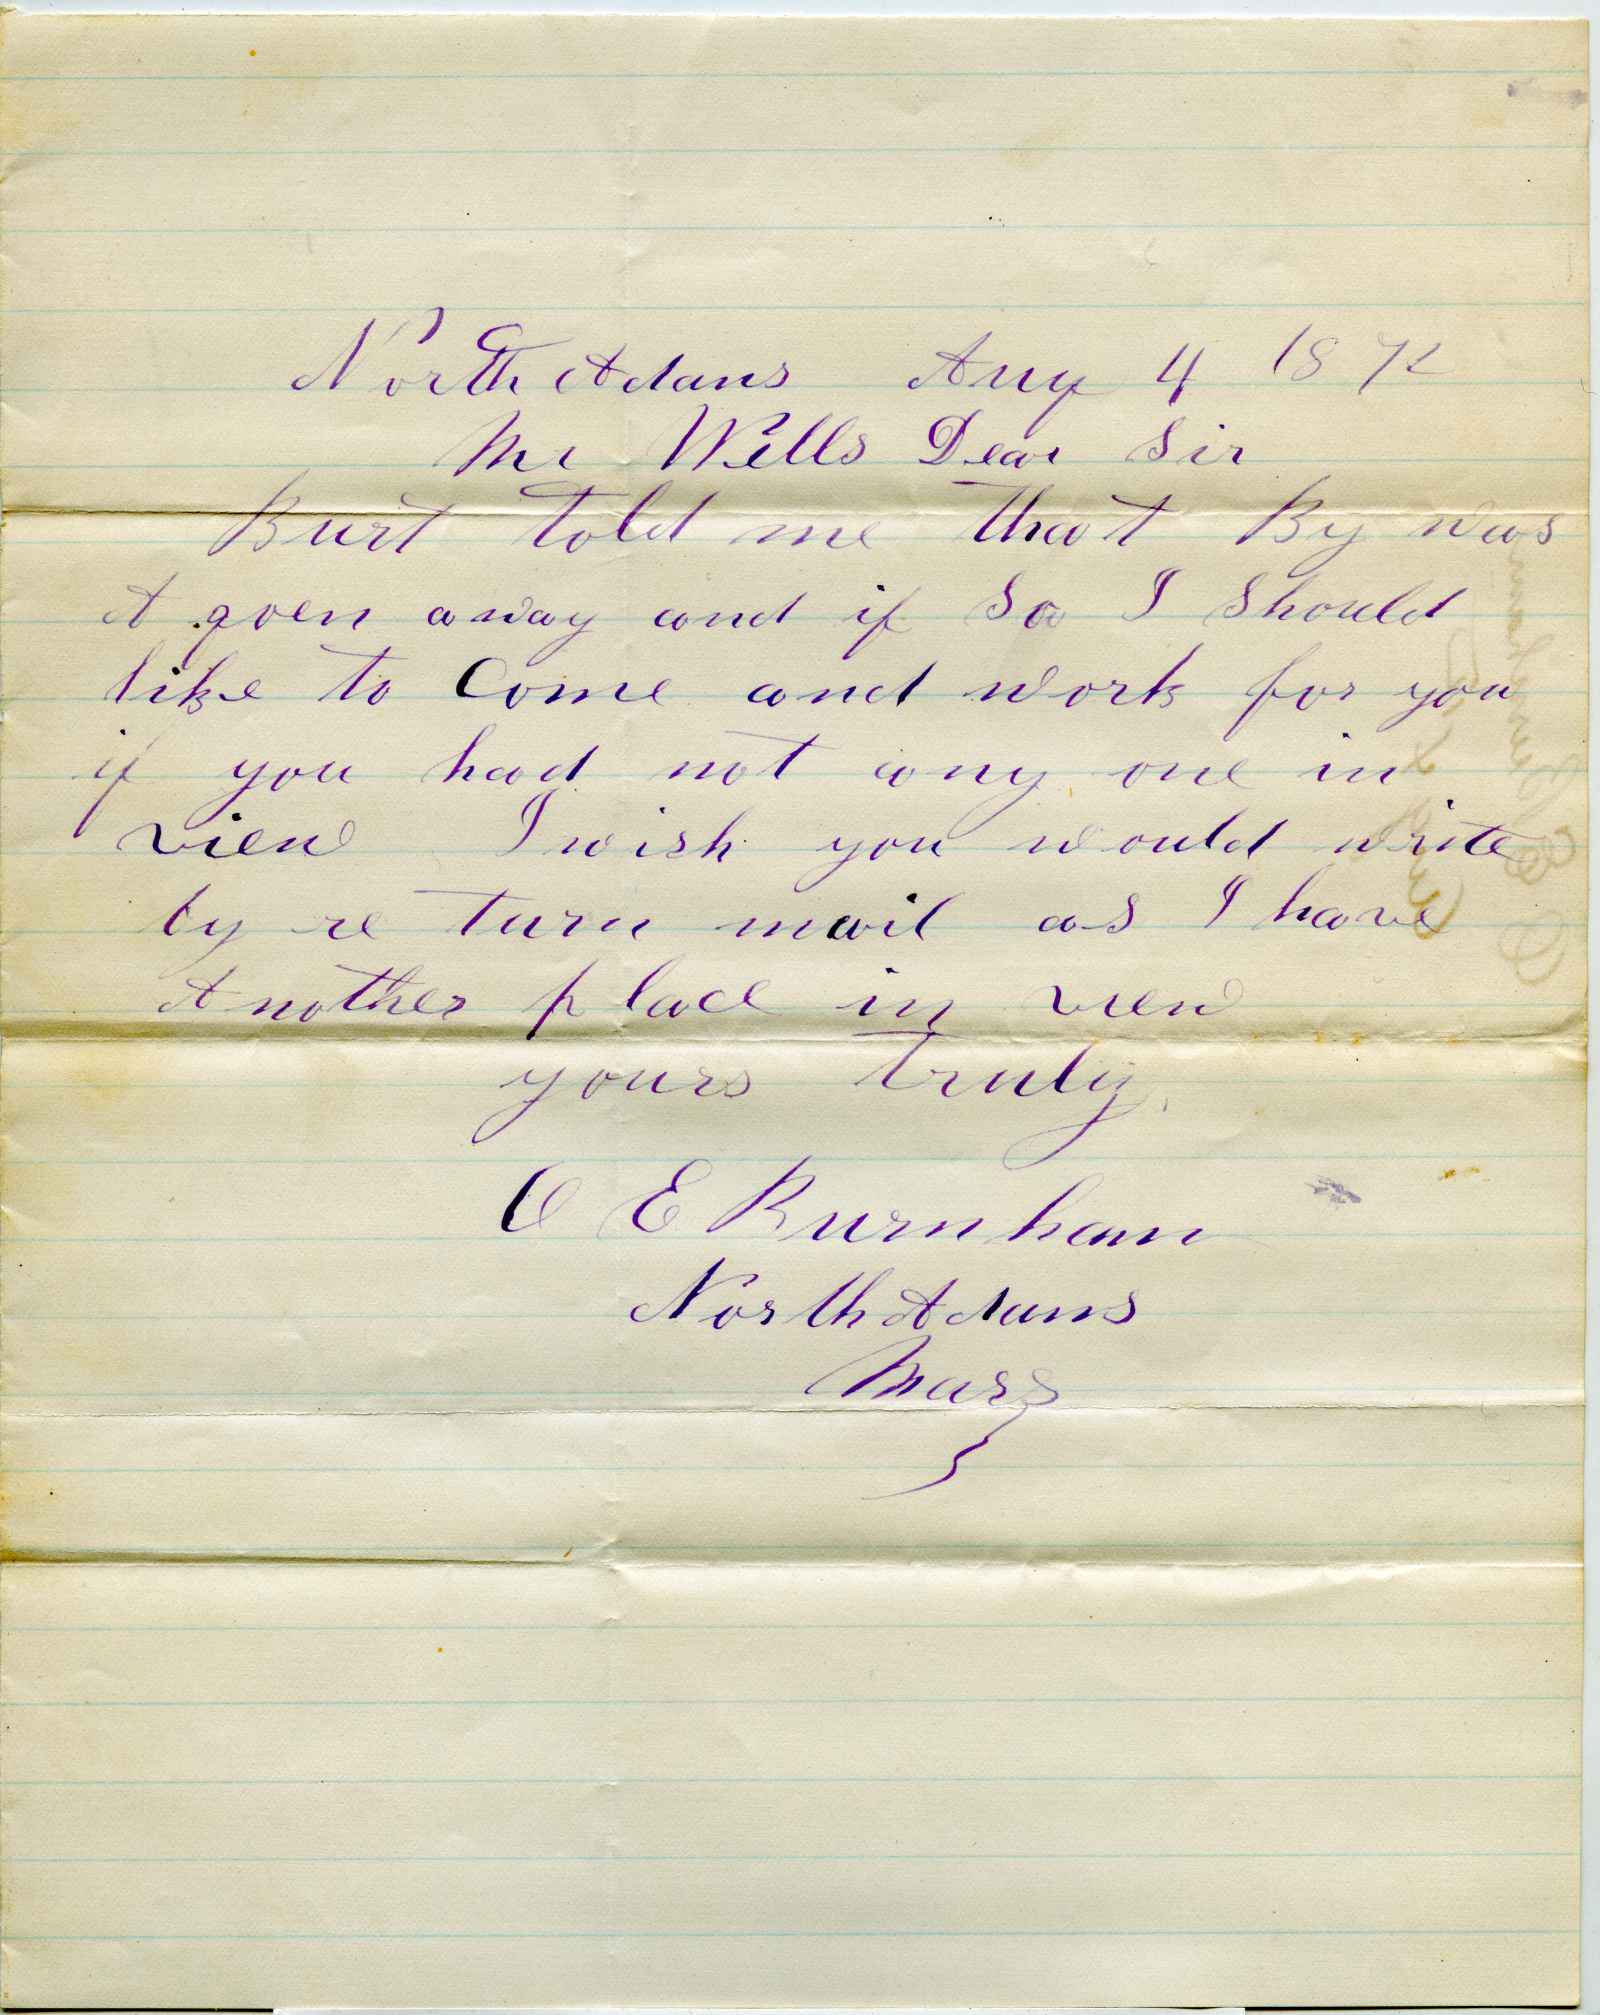 North Adams Aug 4 1872
Mr Wells Dear Sir
Burt told me that By was
A goen away and if So I Should
like to Come and work for you
if you had not any one in
view I wish you would write
by re turn mail as I have
Another place in view
yours truly
O E Burnham
North Adams
Mass